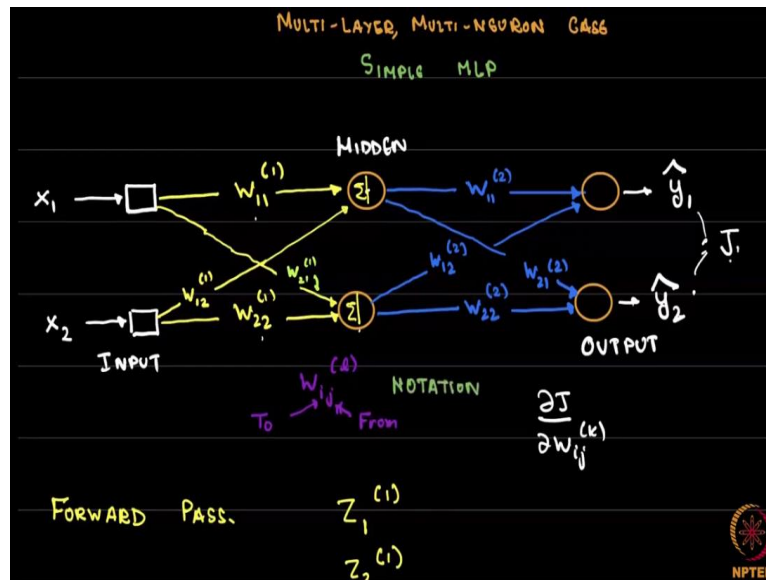 MULTI-LAYER, MULTI-NEURON CASE
SIMPLE MLP
HIDDEN
x₁ W₁₁⁽¹⁾ Σ W₁₁⁽²⁾ ŷ₁
J
W₁₂⁽¹⁾ W₂₁⁽¹⁾ W₁₂⁽²⁾ W₂₁⁽²⁾
x₂ W₂₂⁽¹⁾ Σ W₂₂⁽²⁾ ŷ₂
INPUT OUTPUT
Wᵢⱼ⁽ˡ⁾ NOTATION
To From
∂J
∂Wᵢⱼ⁽ᵏ⁾
FORWARD PASS. Z₁⁽¹⁾
Z₂⁽¹⁾
NPTEL